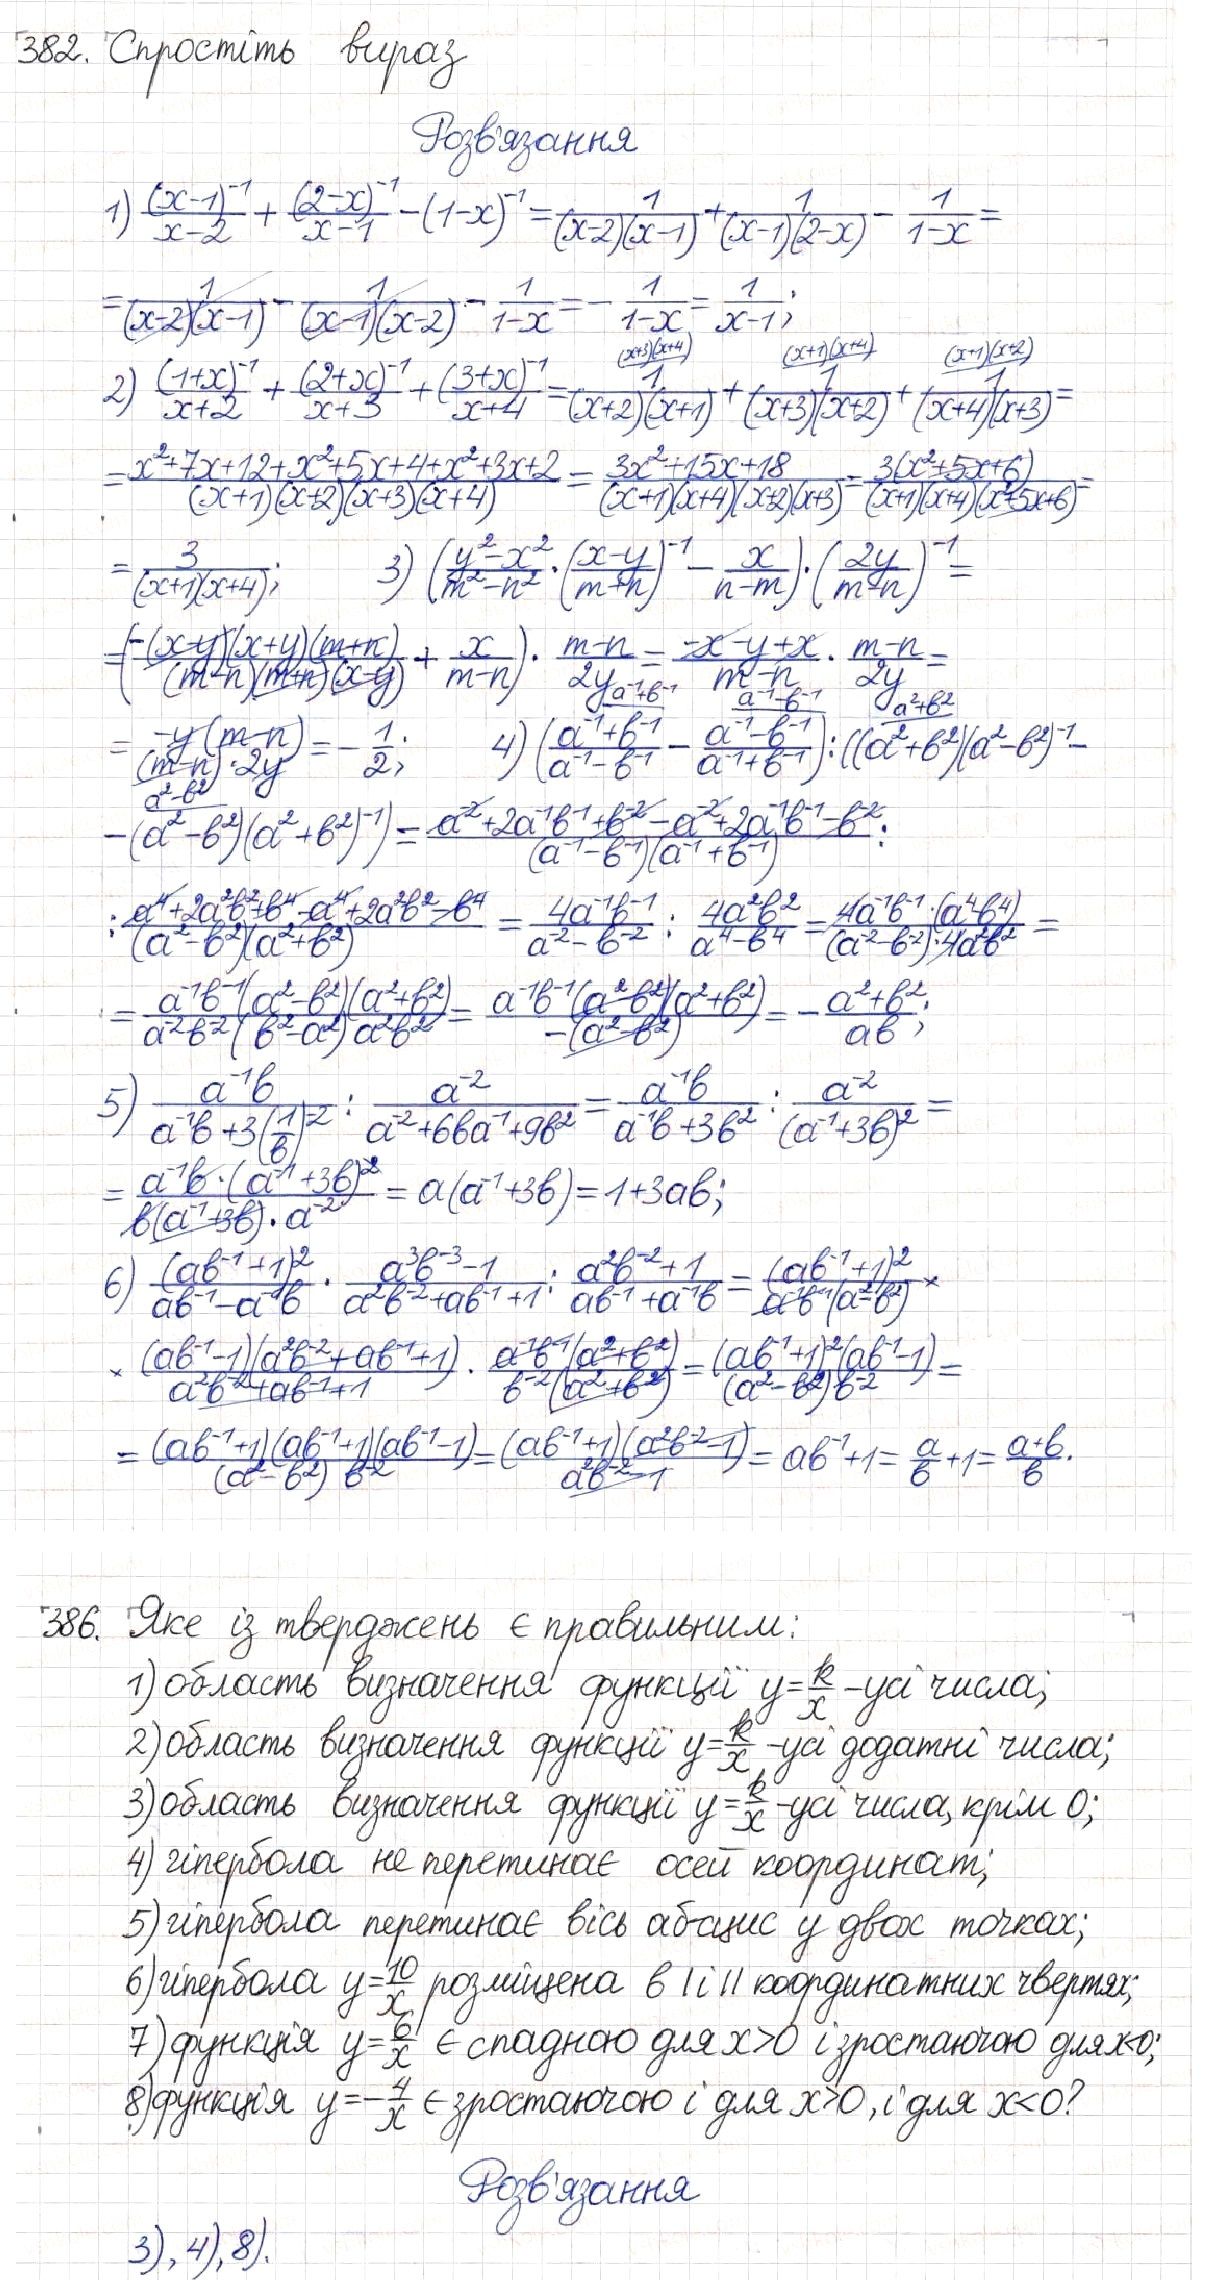 382. Спростіть вираз
Розв'язання
1) (x-1)⁻¹/(x-2) + (2-x)⁻¹/(x-1) - (1-x)⁻¹ = 1/((x-2)(x-1)) + 1/((x-1)(2-x)) - 1/(1-x) =
= 1/((x-2)(x-1)) - 1/((x-1)(x-2)) - 1/(1-x) = - 1/(1-x) = 1/(x-1);
2) (1+x)⁻¹/(x+2) + (2+x)⁻¹/(x+3) + (3+x)⁻¹/(x+4) = 1/((x+2)(x+1)) (x+3)(x+4) + 1/((x+3)(x+2)) (x+1)(x+4) + 1/((x+4)(x+3)) (x+1)(x+2) =
= (x²+7x+12+x²+5x+4+x²+3x+2)/((x+1)(x+2)(x+3)(x+4)) = (3x²+15x+18)/((x+1)(x+4)(x+2)(x+3)) = 3(x²+5x+6)/((x+1)(x+4)(x²+5x+6)) =
= 3/((x+1)(x+4)); 3) ((y²-x²)/(m²-n²) · ((x-y)/(m+n))⁻¹ - x/(n-m)) · (2y/(m-n))⁻¹ =
= (-(x-y)(x+y)(m+n)/((m-n)(m+n)(x-y)) + x/(m-n)) · (m-n)/2y = (-x-y+x)/(m-n) · (m-n)/2y =
= -y(m-n)/((m-n)·2y) = - 1/2; 4) ((a⁻¹+b⁻¹)/(a⁻¹-b⁻¹) a⁻¹+b⁻¹ - (a⁻¹-b⁻¹)/(a⁻¹+b⁻¹) a⁻¹-b⁻¹) : ((a²+b²)(a²-b²)⁻¹ a²+b² -
- (a²-b²)(a²+b²)⁻¹) a²-b² = (a⁻²+2a⁻¹b⁻¹+b⁻²-a⁻²+2a⁻¹b⁻¹-b⁻²)/((a⁻¹-b⁻¹)(a⁻¹+b⁻¹)) :
: (a⁴+2a²b²+b⁴-a⁴+2a²b²-b⁴)/((a²-b²)(a²+b²)) = 4a⁻¹b⁻¹/(a⁻²-b⁻²) : 4a²b²/(a⁴-b⁴) = 4a⁻¹b⁻¹·(a⁴-b⁴)/((a⁻²-b⁻²)·4a²b²) =
= a⁻¹b⁻¹(a²-b²)(a²+b²)/(a⁻²b⁻²(b²-a²)a²b²) = a⁻¹b⁻¹(a²-b²)(a²+b²)/(-(a²-b²)) = - (a²+b²)/ab;
5) a⁻¹b/(a⁻¹b+3(1/b)⁻²) : a⁻²/(a⁻²+6ba⁻¹+9b²) = a⁻¹b/(a⁻¹b+3b²) : a⁻²/(a⁻¹+3b)² =
= a⁻¹b·(a⁻¹+3b)²/(b(a⁻¹+3b)·a⁻²) = a(a⁻¹+3b) = 1+3ab;
6) (ab⁻¹+1)²/(ab⁻¹-a⁻¹b) · (a³b⁻³-1)/(a²b⁻²+ab⁻¹+1) : (a²b⁻²+1)/(ab⁻¹+a⁻¹b) = (ab⁻¹+1)²/(a⁻¹b⁻¹(a²-b²)) ×
× (ab⁻¹-1)(a²b⁻²+ab⁻¹+1)/(a²b⁻²+ab⁻¹+1) · a⁻¹b⁻¹(a²+b²)/(b⁻²(a²+b²)) = (ab⁻¹+1)²(ab⁻¹-1)/((a²-b²)b⁻²) =
= (ab⁻¹+1)(ab⁻¹+1)(ab⁻¹-1)/((a²-b²)b⁻²) = (ab⁻¹+1)(a²b⁻²-1)/(a²b⁻²-1) = ab⁻¹+1 = a/b +1 = (a+b)/b.
386. Яке із тверджень є правильним:
1) область визначення функції y=k/x - усі числа;
2) область визначення функції y=k/x - усі додатні числа;
3) область визначення функції y=k/x - усі числа, крім 0;
4) гіпербола не перетинає осей координат;
5) гіпербола перетинає вісь абсцис у двох точках;
6) гіпербола y=10/x розміщена в I і II координатних чвертях;
7) функція y=6/x є спадною для x>0 і зростаючою для x<0;
8) функція y=-4/x є зростаючою і для x>0, і для x<0?
Розв'язання
3), 4), 8).